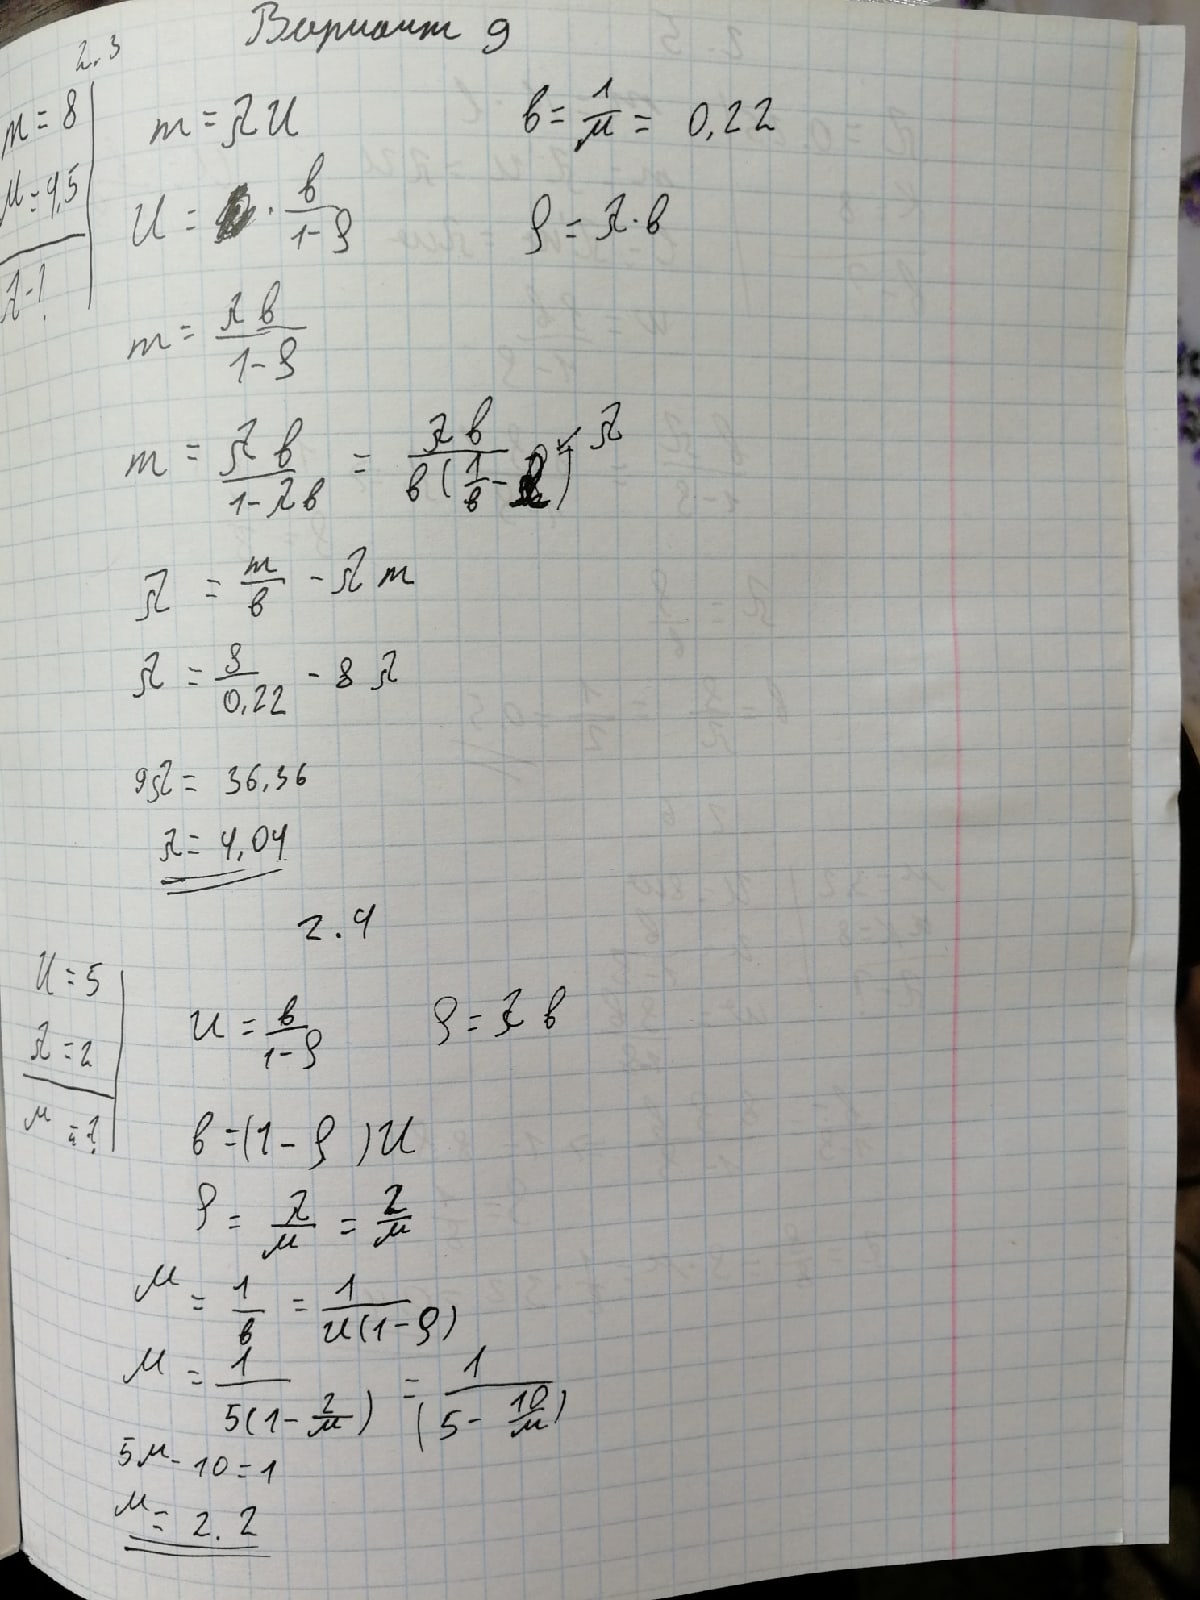 Вариант 9
2.3
m = 8
μ = 4,5
λ - ?
m = λ u
b = 1/μ = 0,22
u = · b/(1-ρ)
ρ = λ · b
m = λ b/(1-ρ)
m = λ b/(1-λ b) = λ b/(b(1/b - λ))
λ = m/b - λ m
λ = 8/0,22 - 8 λ
9λ = 36,36
λ = 4,04
2.4
u = 5
λ = 2
μ = ?
u = b/(1-ρ)
ρ = λ b
b = (1 - ρ) u
ρ = λ/μ = 2/μ
μ = 1/b = 1/(u(1-ρ))
μ = 1/(5(1-2/μ)) = 1/(5 - 10/μ)
5μ - 10 = 1
μ = 2.2